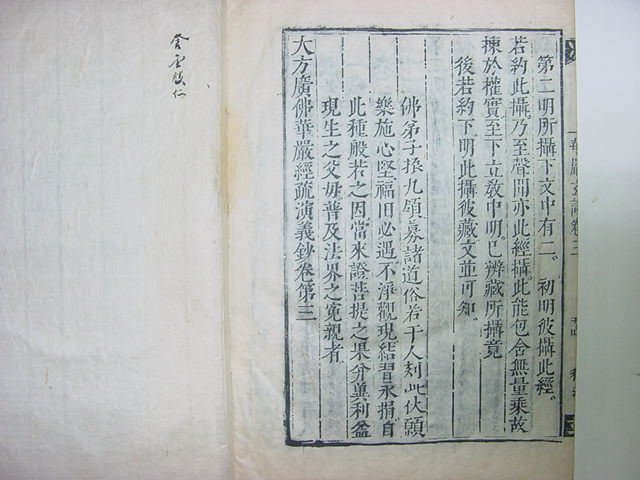 第二明所攝下文中有二。初明彼攝此經。
若約此攝。乃至聲聞亦此經攝此能包含無量乘故
揀於權實至下立教中明已辨藏所攝竟
後若約下明此攝彼藏文並可知。
佛弟子 九領募諸道俗若干人刻此伏願
樂施心堅福田必遇。不淨觀現結習永捐。自
此種般若之因當來證菩提之果分 利益
現生之父母普及法界之寃親者
大方廣佛華嚴經疏演義鈔卷第三